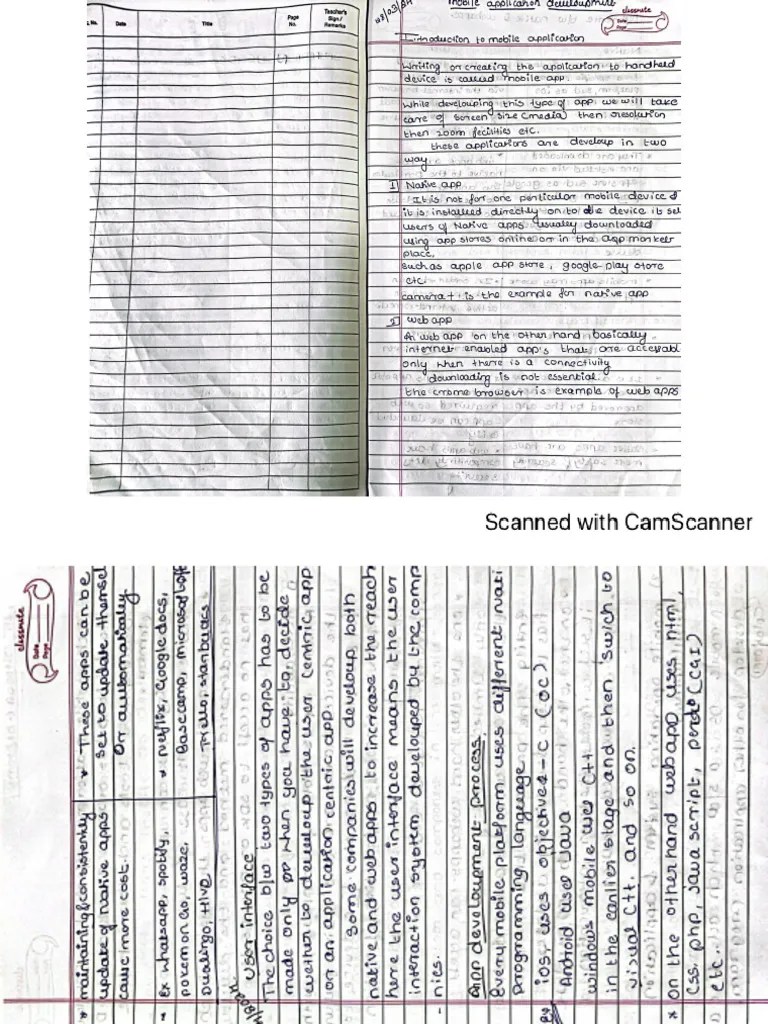 S. No.
Date
Title
Page No.
Teacher's Sign / Remarks
mobile application development
classmate
Date
Page
Introduction to mobile application
Writing or creating the application to handheld
device is called mobile app.
While developing this type of app we will take
care of screen size (media) then resolution
then zoom fecilities etc.
these applications are develop in two
way.
1] Native app
It is not for one perticular mobile device &
it is installed directly on to the device it sel
users of Native apps usually downloaded
using app stores online or in the app market
place.
such as apple app store, google play store
etc
camera + is the example for native app
2] web app
A web app on the other hand basically
internet enabled app's that are accessabl
only when there is a connectivity
downloading is not essential.
the crome browser is example of web apps
Scanned with CamScanner
classmate
Date
Page
* maintaining & consistently
update of native apps
cause more cost.
* These apps can be
set to update themsel
or automatically
* Ex whatsapp, spotify,
pokemon Go, waze,
Duolingo, HIVE
* netflix, Google docs,
Basecamp, microsoft off
Trello, starbucks
user interface
The choice b/w two types of apps has to be
made only or when you have to decide
wether to develop the user centric app
or an application centric app
Some companies will develop both
native and web apps to increase the reach
here the user interface means the user
interaction system developed by the comp
- nies.
App development process.
Every mobile platform uses different nati
programming language
Ex ios, uses objective-C (OC)
Android uses Java
windows mobile uses C++
in the earlier stage and then swich to
visual C++. and so on.
* on the other hand web app uses html,
Css, php, java script, perl (CGI)
etc.